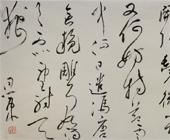 開張鬢微霜
又何妨持節雲
中何日遣馮唐
會挽雕弓如滿
月西北望射天
狼